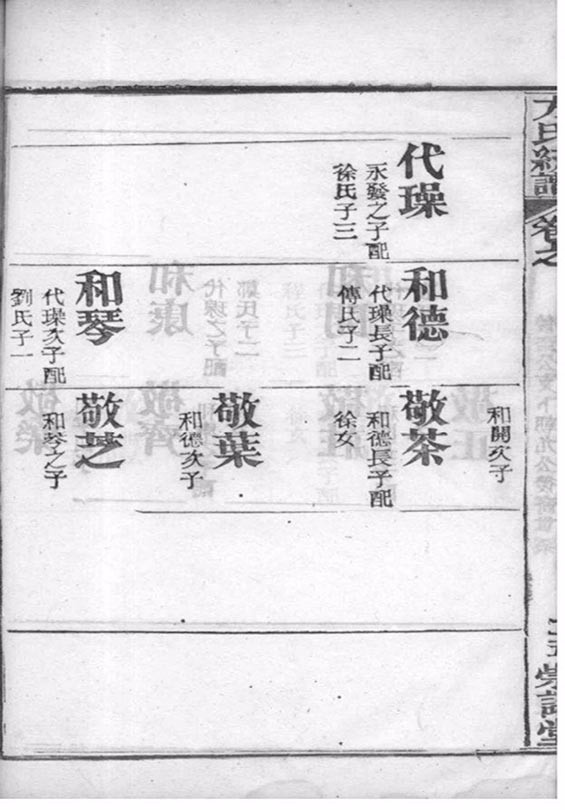 代璪
永發之子配
徐氏子三
和德
代璪長子配
傅氏子二
和琴
代璪次子配
劉氏子一
和開次子
敬茶
和德長子配
徐女
敬葉
和德次子
敬芝
和琴之子